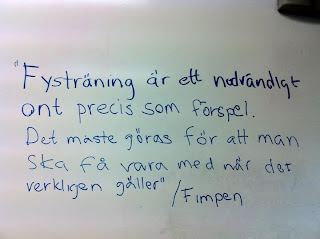 "Fysträning är ett nödvändigt
ont precis som förspel.
Det måste göras för att man
ska få vara med när det
verkligen gäller" /Fimpen